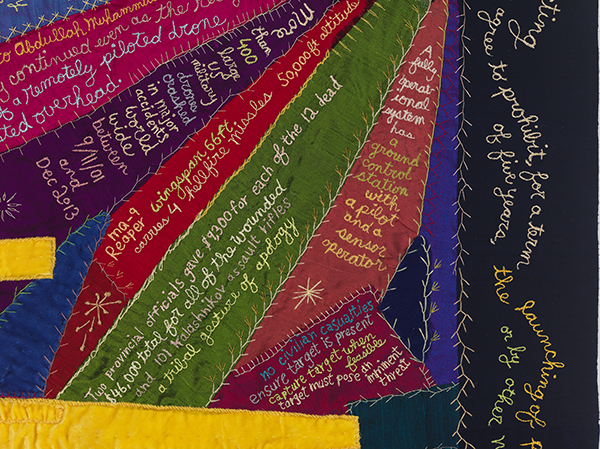 to Abdullah Muhammad
continued even as the
of a remotely piloted drone
overhead!
More
than
400
large
US
military
drones
crashed
in major
accidents
world
wide
between
9/11/01
and
Dec 2013
MQ-9
Reaper wingspan 66ft
carries 4 hellfire missles 50,000ft altitude
Two provincial officials gave $9300 for each of the 12 dead
$46,000 total for all of the wounded
and 101 Kalashnikov assault rifles
a tribal gesture of apology
A
fully
operat
ional
system
has
a
ground
control
station
with
a pilot
and a
sensor
operator
no civilian casualties
ensure target is present
capture target when
feasible
target must pose an imminent
threat
agree to prohibit, for a term
of five years,
the launching of
or by other